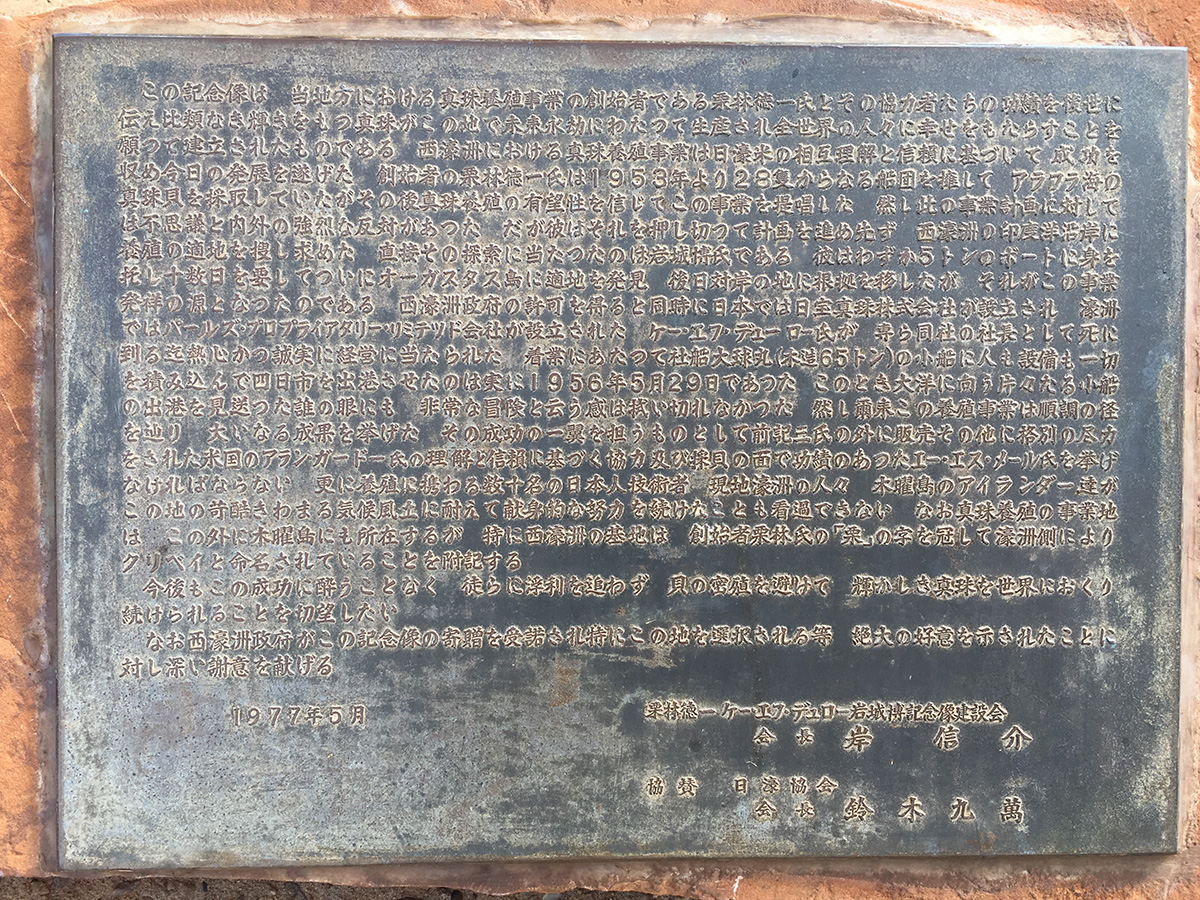 この記念像は 当地方における真珠養殖事業の創始者である栗林徳一氏とその協力者たちの功績を後世に
伝え比類なき輝きをもつ真珠がこの地で未来永劫にわたつて生産され全世界の人々に幸せをもたらすことを
願つて建立されたものである 西濠洲における真珠養殖事業は日濠米の相互理解と信頼に基づいて成功を
収め今日の発展を遂げた 創始者の栗林徳一氏は1953年より28隻からなる船団を推して アラフラ海の
真珠貝を採取していたがその後真珠養殖の有望性を信じてこの事業を提唱した 然し此の事業計画に対して
は不思議と内外の強烈な反対があつた だが彼はそれを押し切つて計画を進め先ず 西濠洲の印度洋沿岸に
養殖の適地を捜し求めた 直接その探索に当たつたのは岩城博氏である 彼はわずか5トンのボートに身を
托し十数日を要してついにオーガスタス島に適地を発見 後日対岸の地に根拠を移したが それがこの事業
発祥の源となつたのである 西濠洲政府の許可を得ると同時に日本では日宝真珠株式会社が設立され 濠洲
ではパールズ・プロプライアタリー・リミテッド会社が設立された ケー・エフ・デューロー氏が 専ら同社の社長として死に
到る迄熱心かつ誠実に経営に当たられた 着業にあたつて社船大球丸(木造65トン)の小船に人も設備も一切
を積み込んで四日市を出港させたのは実に1956年5月29日であつた このとき大洋に向う片々たる小船
の出港を見送つた誰の眼にも 非常な冒険と云う感は拭い切れなかつた 然し爾来この養殖事業は順調の径
を辿り 大いなる成果を挙げた その成功の一翼を担うものとして前記三氏の外に販売その他に格別の尽力
をされた米国のアラン・ガードー氏の理解と信頼に基づく協力及び採貝の面で功績のあつたエー・エス・メール氏を挙げ
なければならない 更に養殖に携わる数十名の日本人技術者 現地濠洲の人々 木曜島のアイランダー達が
この地の苛酷きわまる気候風土に耐えて献身的な努力を続けたことも看過できない なお真珠養殖の事業地
は この外に木曜島にも所在するが 特に西濠洲の基地は 創始者栗林氏の「栗」の字を冠して濠洲側により
クリベイと命名されていることを附記する
今後もこの成功に酔うことなく 徒らに浮利を追わず 貝の密殖を避けて 輝かしき真珠を世界におくり
続けられることを切望したい
なお西濠洲政府がこの記念像の寄贈を受諾され特にこの地を選択される等 絶大の好意を示されたことに
対し深い謝意を献げる
1977年5月
栗林徳一・ケー・エフ・デュロー岩城博記念像建設会
会長 岸信介
協賛 日濠協会
会長 鈴木九萬